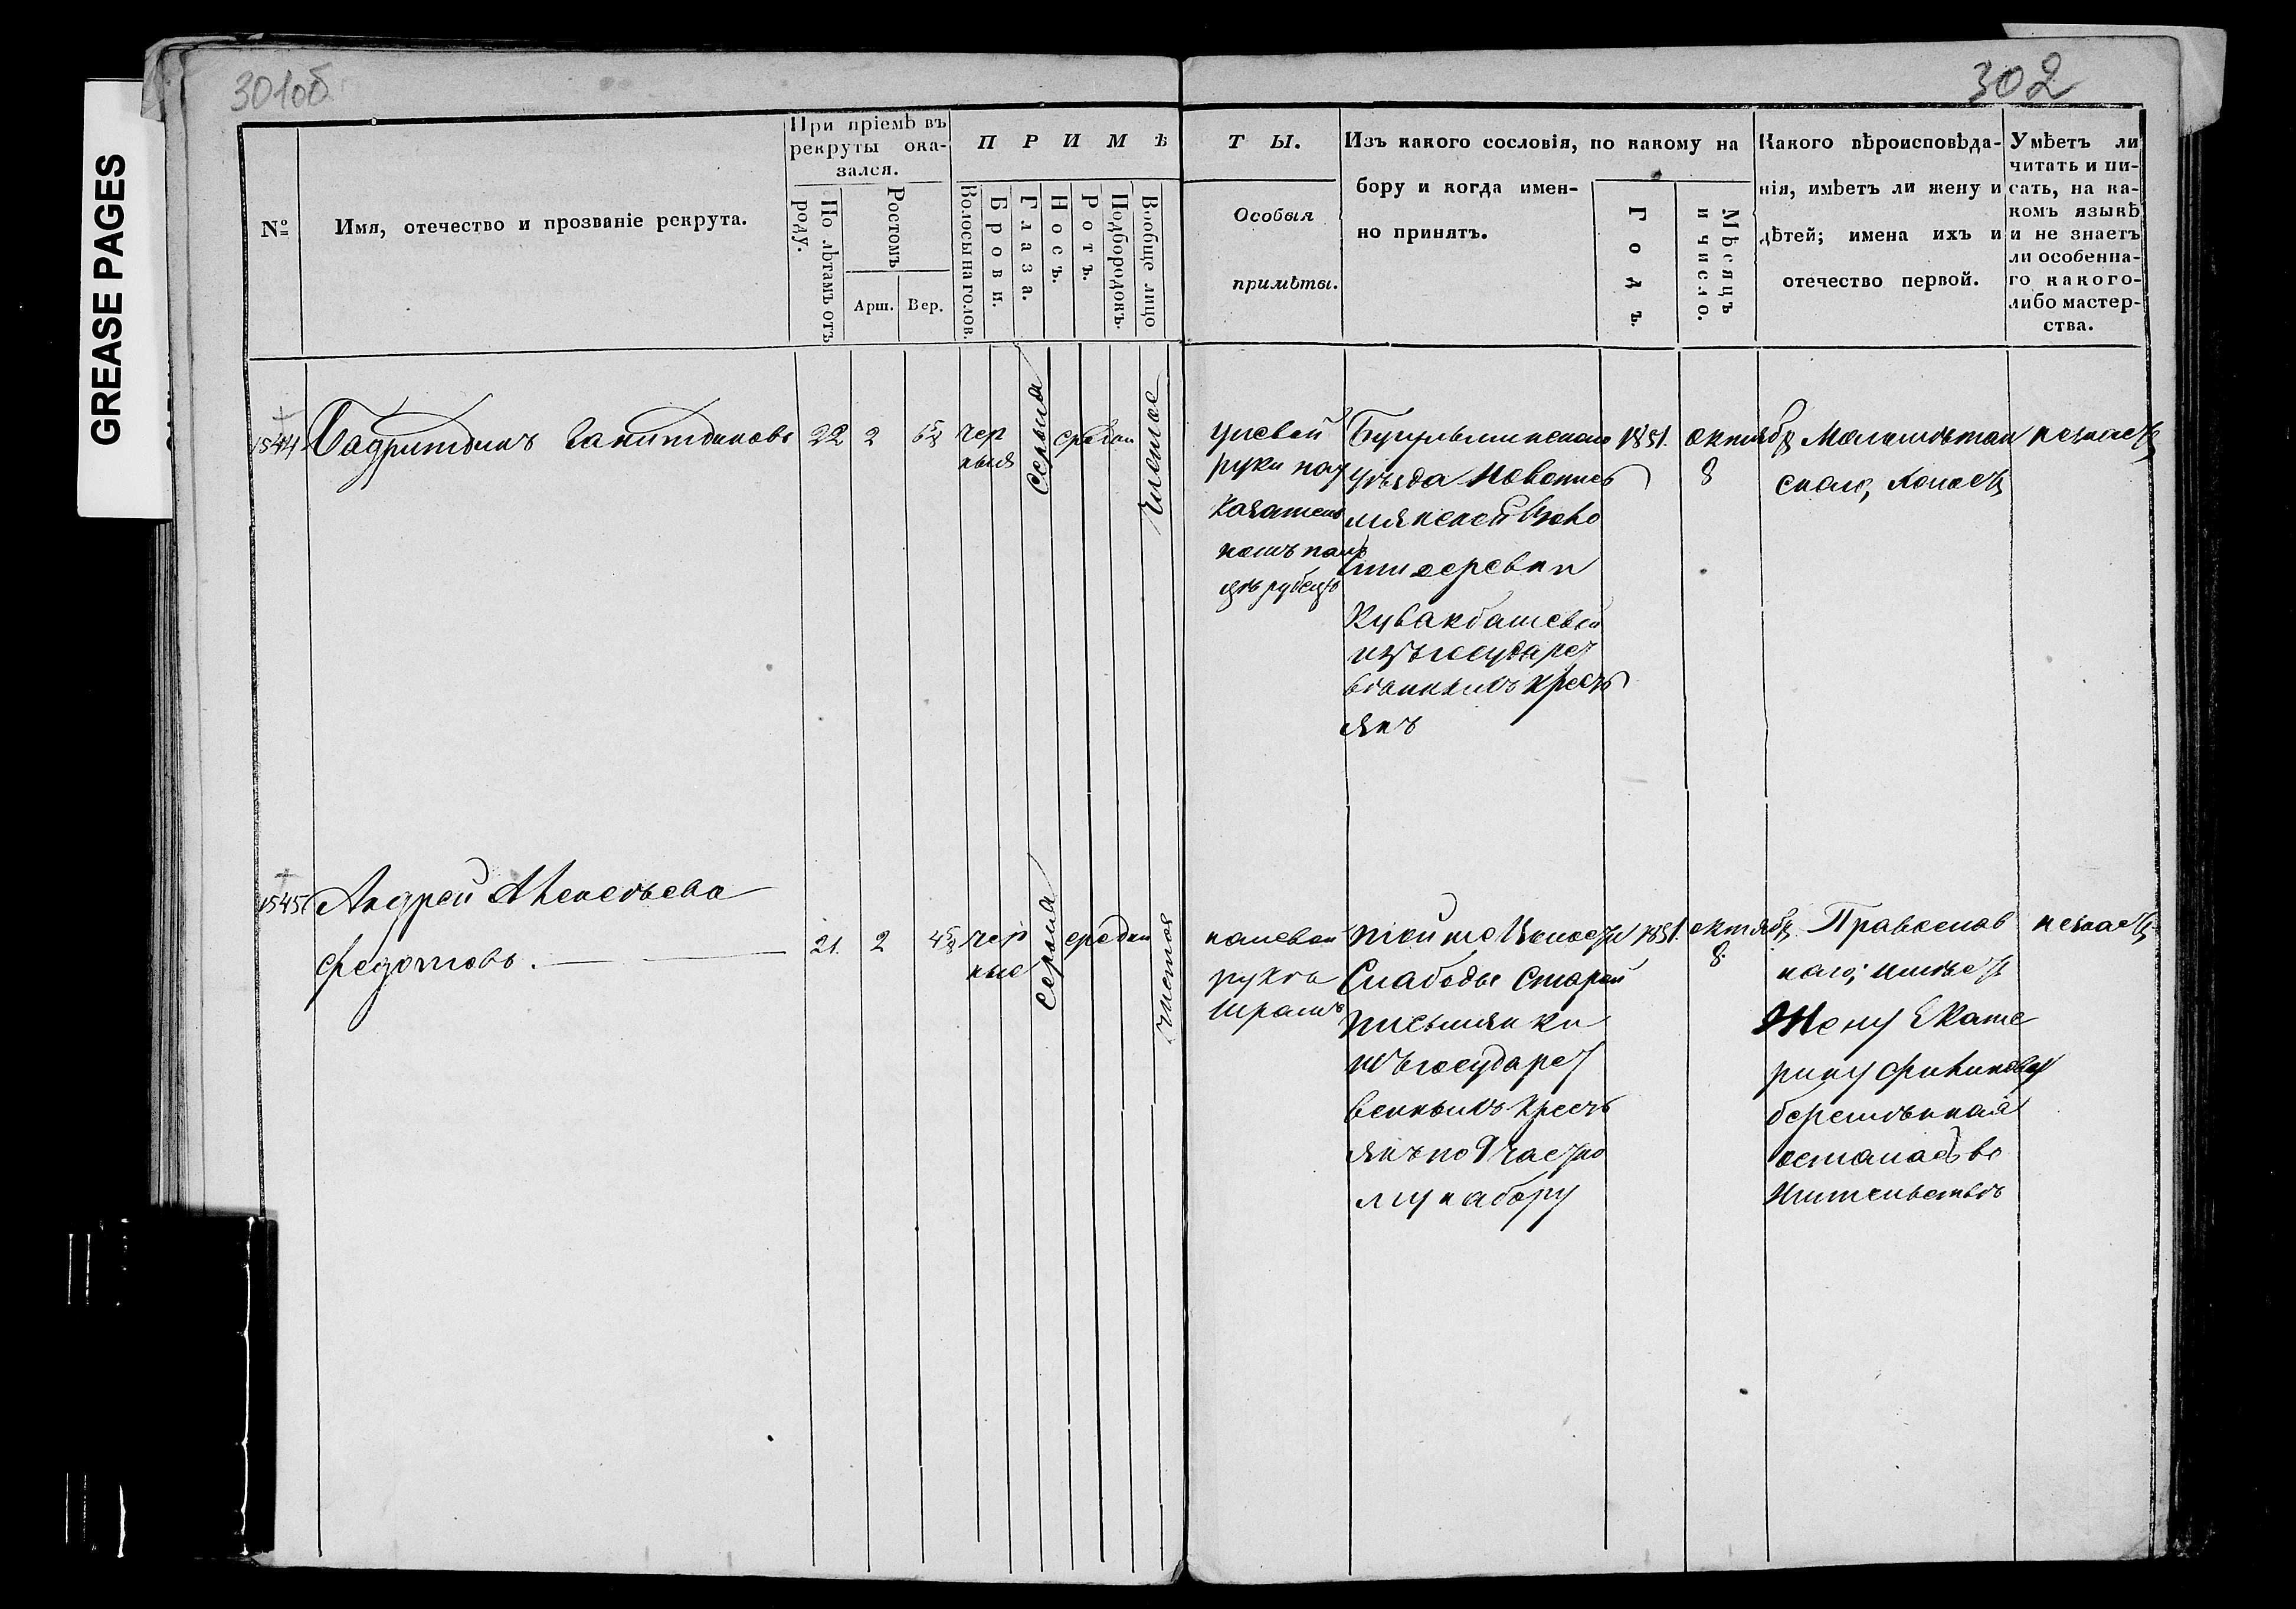 GREASE PAGES
301об
302
№
Имя, отечество и прозваніе рекрута.
При пріемѣ въ
рекруты ока-
зался.
По лѣтамъ отъ
роду.
Ростомъ
Арш.
Вер.
П Р И М Ѣ
Волосы на голов.
Брови.
Глаза.
Носъ.
Ротъ.
Подбородокъ.
Вообще лицо
Т Ы.
Особыя
примѣты.
Изъ какого сословія, по какому на
бору и когда имен-
но принятъ.
Годъ.
Мѣсяцъ
и число.
Какого вѣроисповѣда-
нія, имѣетъ ли жену и
дѣтей; имена ихъ и
отечество первой.
Умѣетъ ли
читать и пи-
сать, на ка-
комъ языкѣ
и не знаетъ
ли особенна-
го какого-
либо мастер-
ства.
1544
22
2
чер
ныя
серыя
средни
чистое
у левой
руки
рубецъ
Бугульминскаго
уѣзда Новопись
мянской Воло
сти деревни
Кувакбашевой
изъ государст
венныхъ кресть
янъ
1851.
октябр
8
Магометан
скаго, холостъ
незнаетъ
1545
Андрей
Федотовъ.
21.
2
чер
ные
серыя
средни
чистое
на левой
рукѣ
шрамъ
той же Волости
Слабоды Старой
Письмянки
изъ государст
венныхъ кресть
янъ по 9 частно
му набору
1851.
октябр
8.
Православ
наго; имѣетъ
Жену Екате
рину
беременная
осталась въ
жительствѣ
незнаетъ